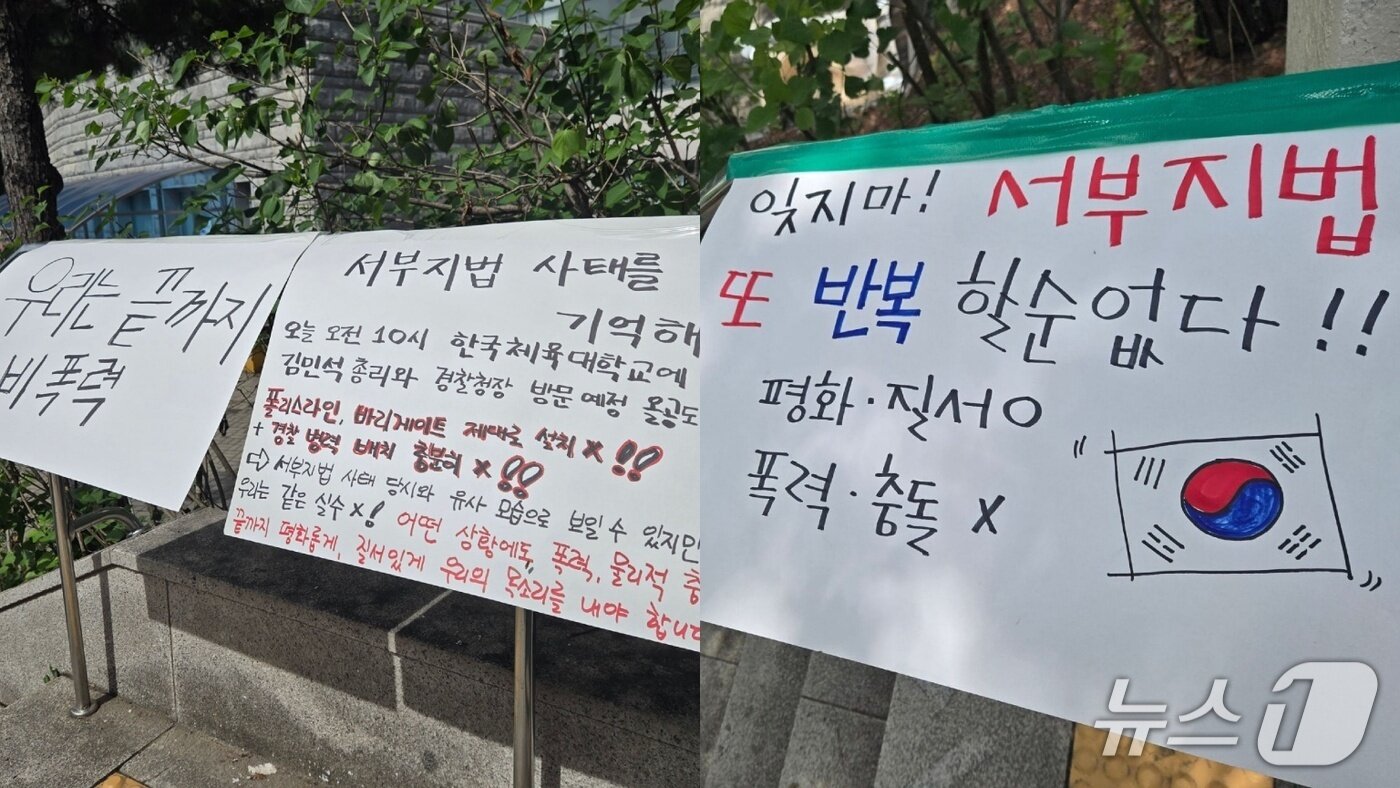 우리는 끝까지
비폭력
서부지법 사태를
기억해
오늘 오전 10시 한국체육대학교에
김민석 총리와 경찰청장 방문 예정 올공도
폴리스라인, 바리게이트 제대로 설치 X!!
+ 경찰 병력 배치 충분히 X!!
⇨ 서부지법 사태 당시와 유사 모습으로 보일 수 있지만
우리는 같은 실수 X! 어떤 상황에도, 폭력, 물리적 충
끝까지 평화롭게, 질서있게 우리의 목소리를 내야 합니다
잊지마! 서부지법
또 반복 할순없다!!
평화·질서O
폭력·충돌 X
뉴스1